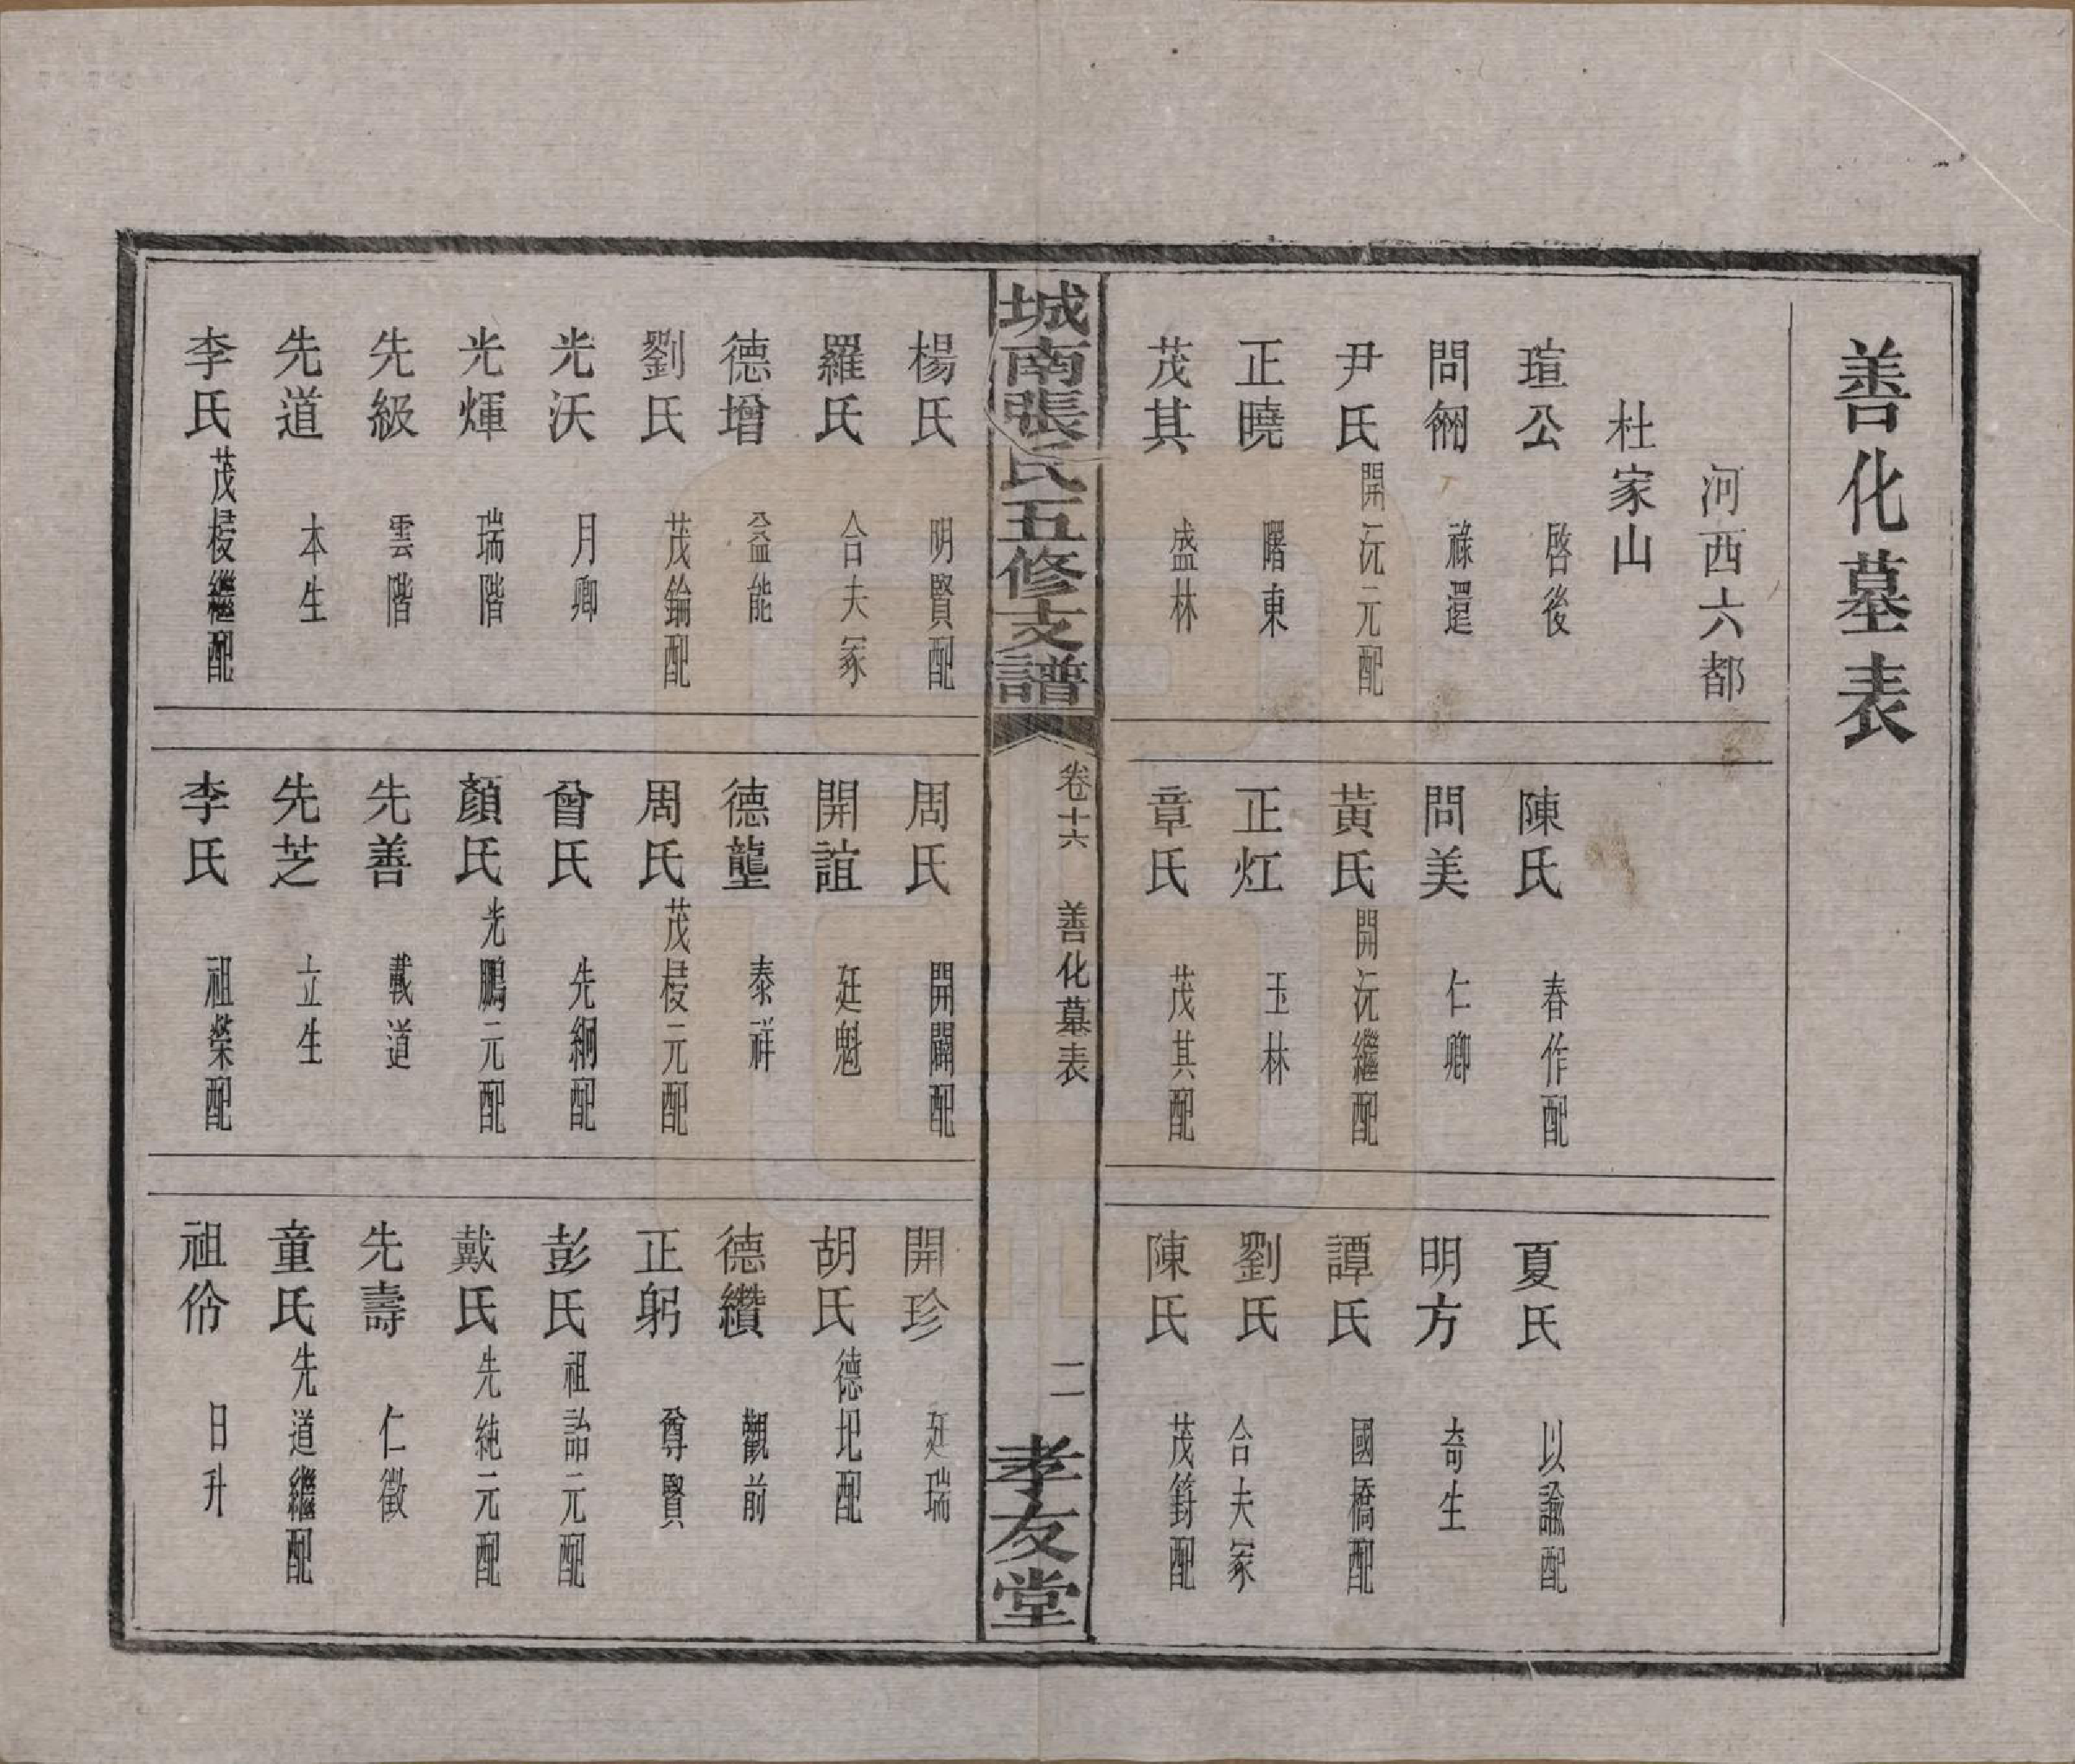 善化墓表
河西六都
杜家山
瑄公 啓後
陳氏 春作配
夏氏 以諭配
問 祿還
問美 仁卿
明方 奇生
尹氏 開沅元配
黃氏 開沅繼配
譚氏 國橋配
正曉 曙東
正灴 玉林
劉氏 合夫冢
茂其 盛林
章氏 茂其配
陳氏 茂篈配
城南張氏五修支譜
卷十六 善化墓表
二
孝友堂
楊氏 明賢配
周氏 開闢配
開珍 廷瑞
羅氏 合夫冢
開誼 廷魁
胡氏 德圯配
德增 益能
德壟 泰祥
德纘 觀前
劉氏 茂錀配
周氏 茂梫元配
正躬 尊賢
光沃 月卿
曾氏 先綗配
彭氏 祖詒元配
光煇 瑞階
顏氏 光鵬元配
戴氏 先純元配
先級 雲階
先善 載道
先壽 仁徵
先道 本生
先芝 立生
童氏 先道繼配
李氏 茂梫繼配
李氏 祖榮配
祖伶 日升